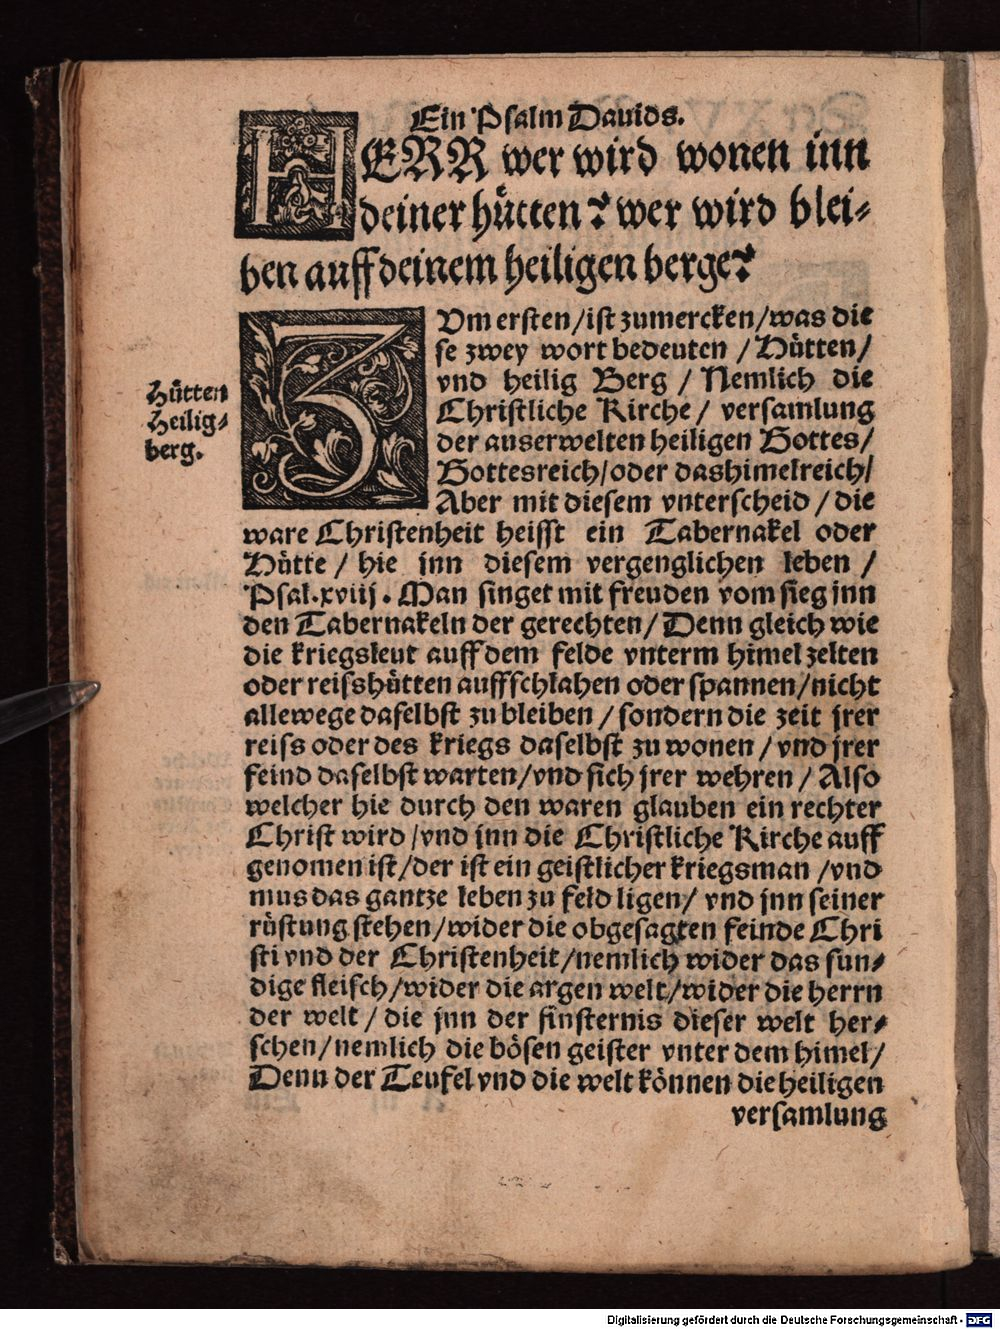 Ein Psalm Dauids.
HERR wer wird wonen inn
deiner hütten? wer wird blei-
ben auff deinem heiligen berge?
Hütten
Heilig-
berg.
ZVm ersten / ist zumercken / was die
se zwey wort bedeuten / Hütten /
vnd heilig Berg / Nemlich die
Christliche Kirche / versamlung
der auserwelten heiligen Gottes /
Gottesreich / oder dashimelreich /
Aber mit diesem vnterscheid / die
ware Christenheit heisst ein Tabernakel oder
Hütte / hie jnn diesem vergenglichen leben /
Psal. xviij. Man singet mit freuden vom sieg jnn
den Tabernakeln der gerechten / Denn gleich wie
die kriegsleut auff dem felde vnterm himel zelten
oder reisshütten auffschlahen oder spannen / nicht
allewege daselbst zu bleiben / sondern die zeit jrer
reiss oder des kriegs daselbst zu wonen / vnd jrer
feind daselbst warten / vnd sich jrer wehren / Also
welcher hie durch den waren glauben ein rechter
Christ wird / vnd jnn die Christliche Kirche auff
genomen ist / der ist ein geistlicher kriegsman / vnd
mus das gantze leben zu feld ligen / vnd jnn seiner
rüstung stehen / wider die obgesagten feinde Chri
sti vnd der Christenheit / nemlich wider das sun-
dige fleisch / wider die argen welt / wider die herrn
der welt / die jnn der finsternis dieser welt her-
schen / nemlich die bösen geister vnter dem himel /
Denn der Teufel vnd die welt können die heiligen
versamlung
Digitalisierung gefördert durch die Deutsche Forschungsgemeinschaft - DFG